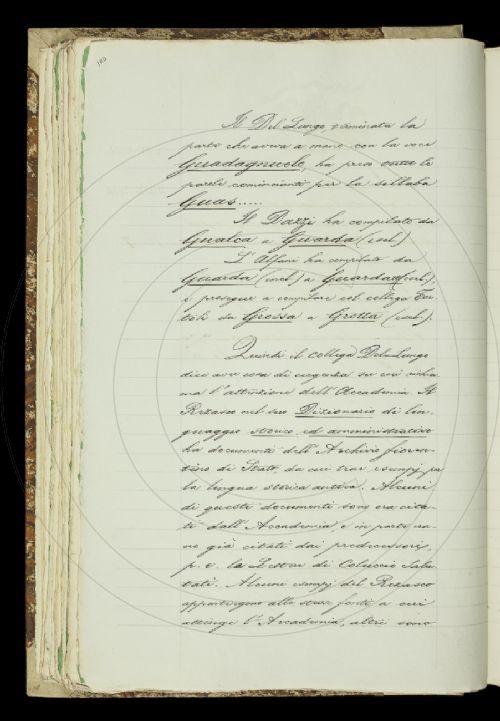 100
Il Del Lungo, terminata la
parte che aveva a mano con la voce
Guadagnuolo, ha preso tutte le
parole comincianti per la sillaba
Guas.....
Il Dazzi ha compilato da
Gualca a Guarda (escl.)
L'Alfani ha compilato da
Guarda (incl.) a (escl.),
e prosegue a compilare col collega Ber-
toli da Grossa a Grotta (escl.).
Quindi il collega Del Lungo
dice aver cosa di urgenza su cui richia-
ma l'attenzione dell'Accademia. Il
Rezasco nel suo Dizionario di lin-
guaggio storico ed amministrativo
ha documenti dell'Archivio fioren-
tino di Stato, da cui trae esempj per
la lingua storica antica. Alcuni
di questi documenti sono ora cita-
ti dall'Accademia, e in parte era-
no già citati dai predecessori,
p. e. la Lettere di Coluccio Salu-
tati. Alcuni esempj del Rezasco
appartengono alle stesse fonti a cui
attinge l'Accademia, altri sono